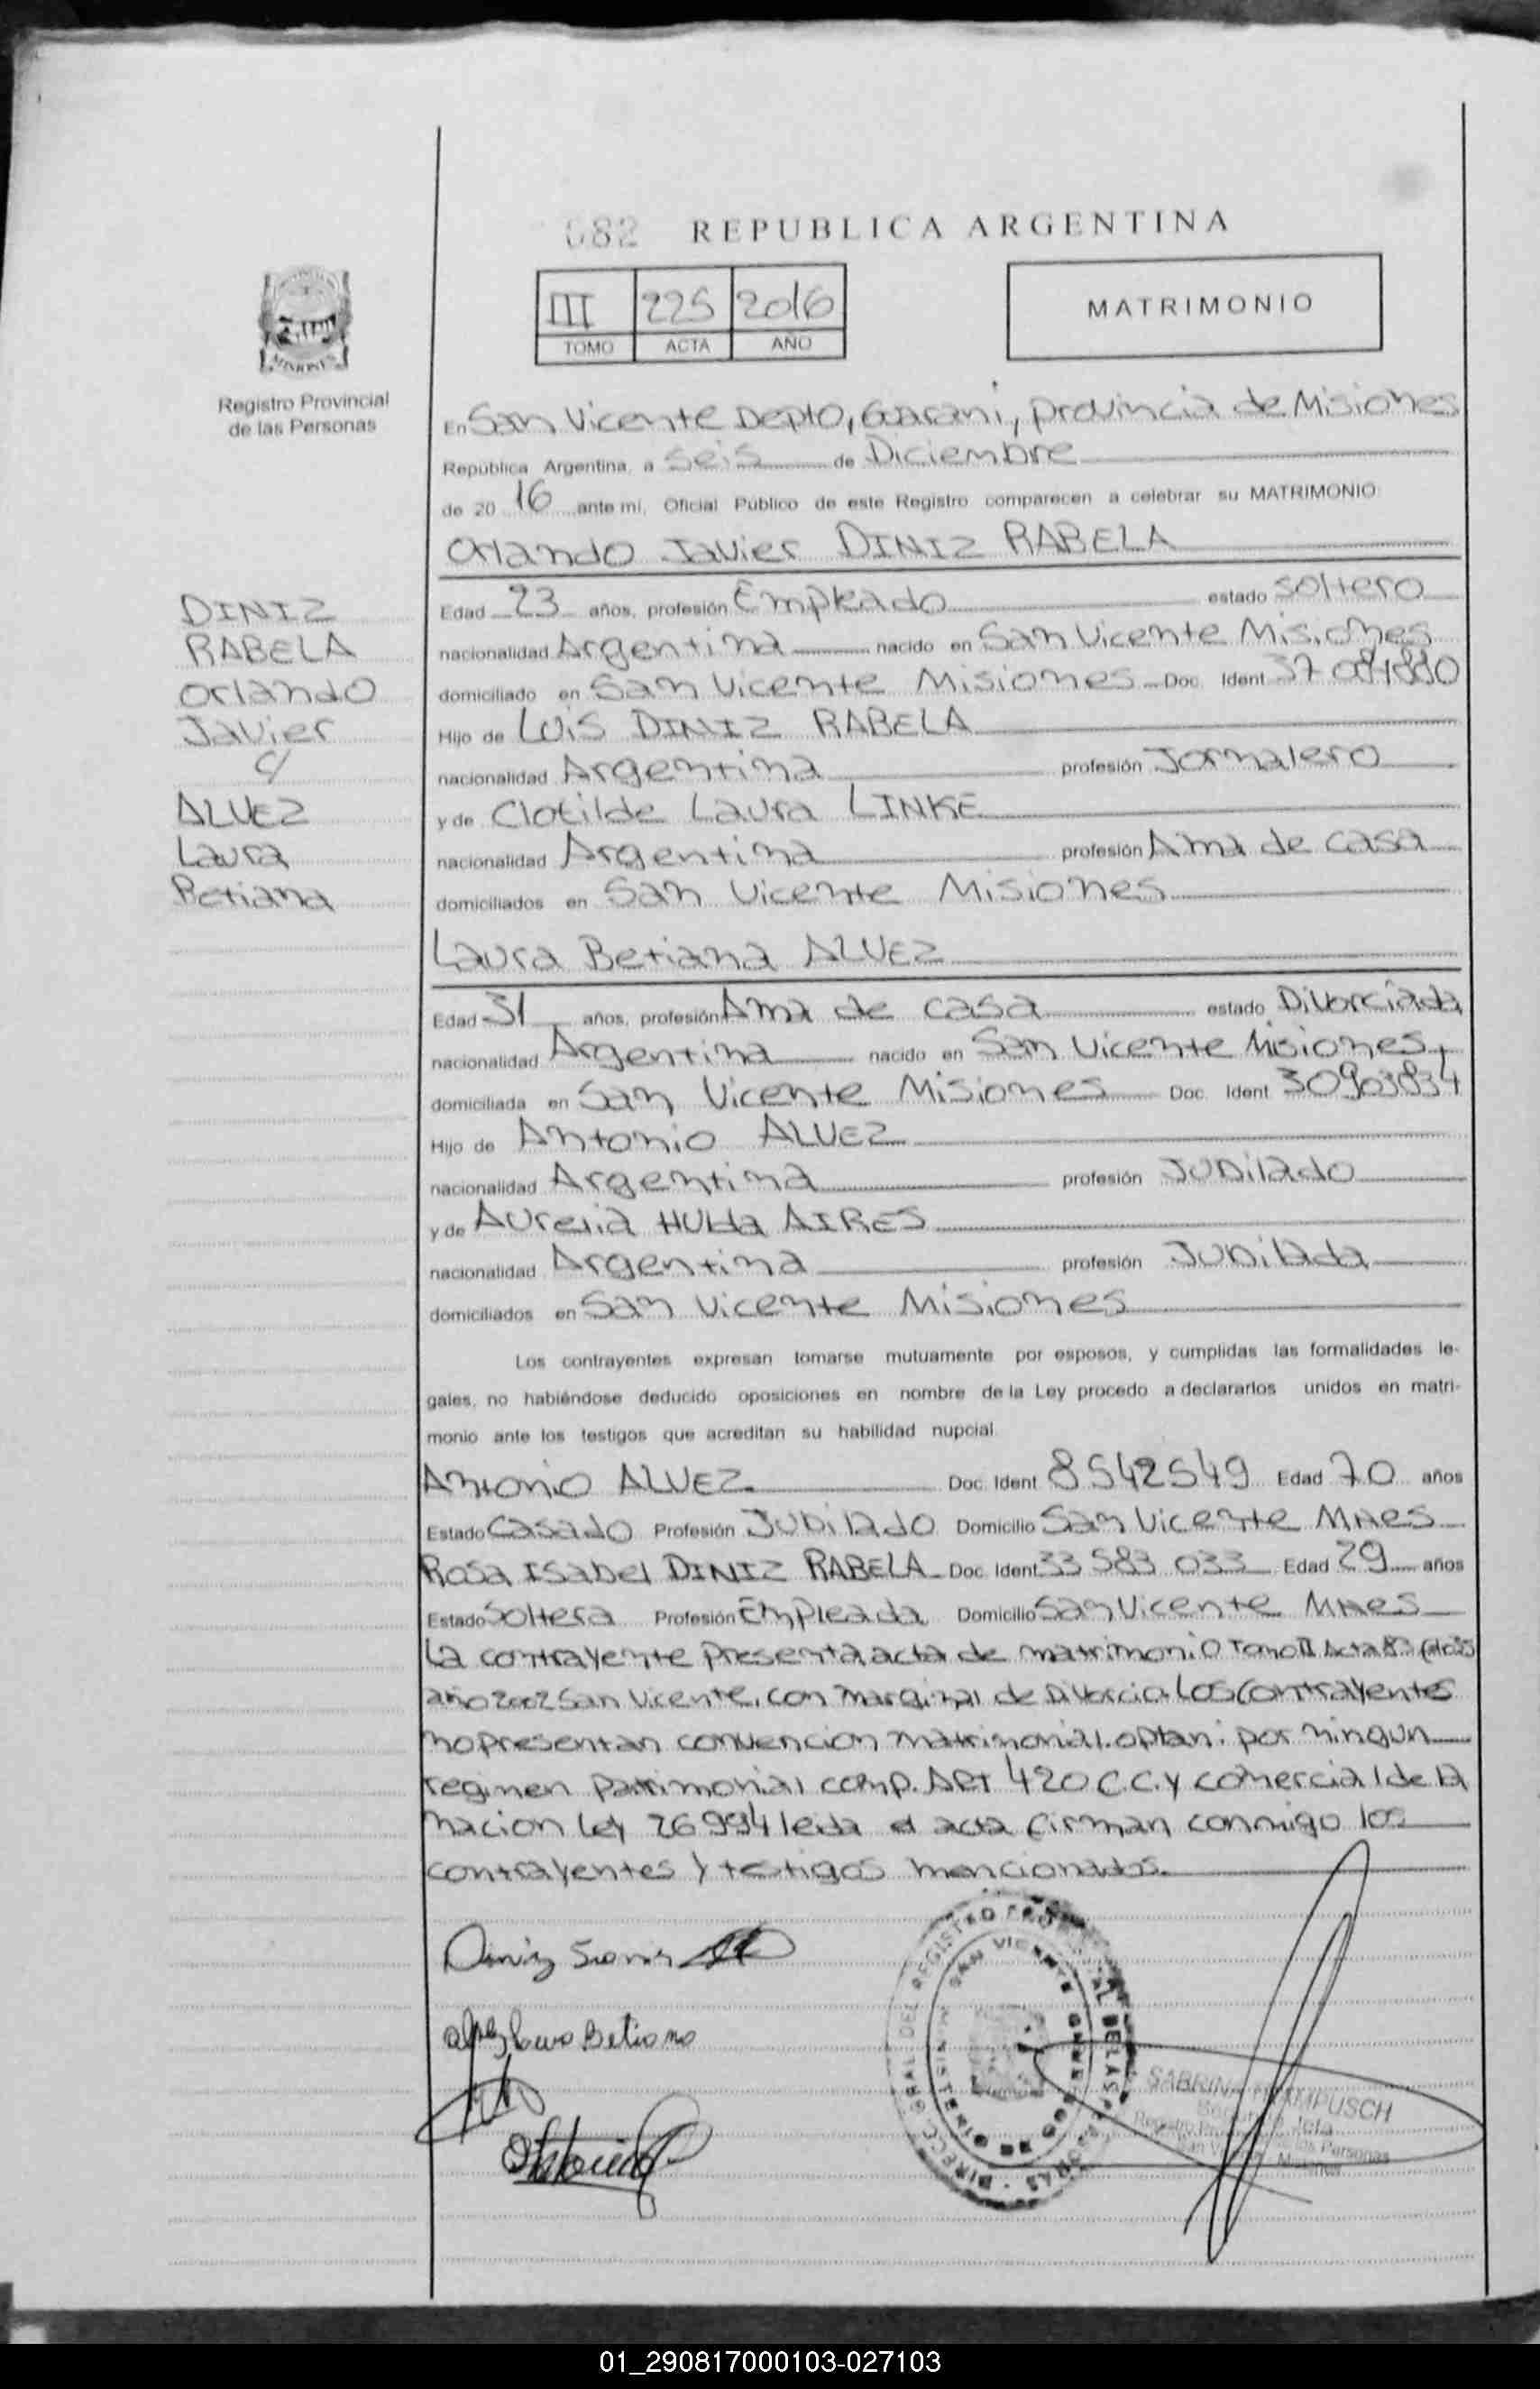 082 REPUBLICA ARGENTINA
III 225 2016
TOMO ACTA AÑO
MATRIMONIO
MISIONES
Registro Provincial
de las Personas
En San Vicente Depto, Guarani, provincia de Misiones
República Argentina, a seis de Diciembre
de 20 16 ante mi, Oficial Público de este Registro comparecen a celebrar su MATRIMONIO:
Orlando Javier DINIZ RABELA
DINIZ
RABELA
Orlando
Javier
c/
ALVEZ
Laura
Betiana
Edad 23 años, profesión Empleado estado soltero
nacionalidad Argentina nacido en San Vicente Misiones
domiciliado en San Vicente Misiones Doc. Ident.
Hijo de Luis DINIZ RABELA
nacionalidad Argentina profesión Jornalero
y de Clotilde Laura LINKE
nacionalidad Argentina profesión Ama de casa
domiciliados en San Vicente Misiones
Laura Betiana ALVEZ
Edad 31 años, profesión Ama de casa estado Divorciada
nacionalidad Argentina nacido en San Vicente Misiones
domiciliada en San Vicente Misiones Doc. Ident. 30903834
Hijo de Antonio ALVEZ
nacionalidad Argentina profesión Jubilado
y de Aurelia Hulda AIRES
nacionalidad Argentina profesión Jubilada
domiciliados en San Vicente Misiones
Los contrayentes expresan tomarse mutuamente por esposos, y cumplidas las formalidades le-
gales, no habiéndose deducido oposiciones en nombre de la Ley procedo a declararlos unidos en matri-
monio ante los testigos que acreditan su habilidad nupcial.
Antonio ALVEZ Doc. Ident. 8542549 Edad 70 años
Estado Casado Profesión Jubilado Domicilio San Vicente Mnes
Rosa Isabel DINIZ RABELA Doc. Ident. 33 583 033 Edad 29 años
Estado Soltera Profesión Empleada Domicilio San Vicente Mnes
La contrayente presenta acta de matrimonio Tomo II Acta
año 2002 San Vicente, con marginal de Divorcio. Los contrayentes
no presentan convencion matrimonial. optan: por ningun
regimen patrimonial comp. ART 420 C.C. y comercial de la
nacion Ley 26994 leida el acta firman conmigo los
contrayentes y testigos mencionados.
Diniz
Betiana
DIRECC. GRAL DEL REGISTRO PROVINCIAL DE LAS PERSONAS
SAN VICENTE
SABRINA
Registro de las Personas
San Vicente Misiones
01_290817000103-027103